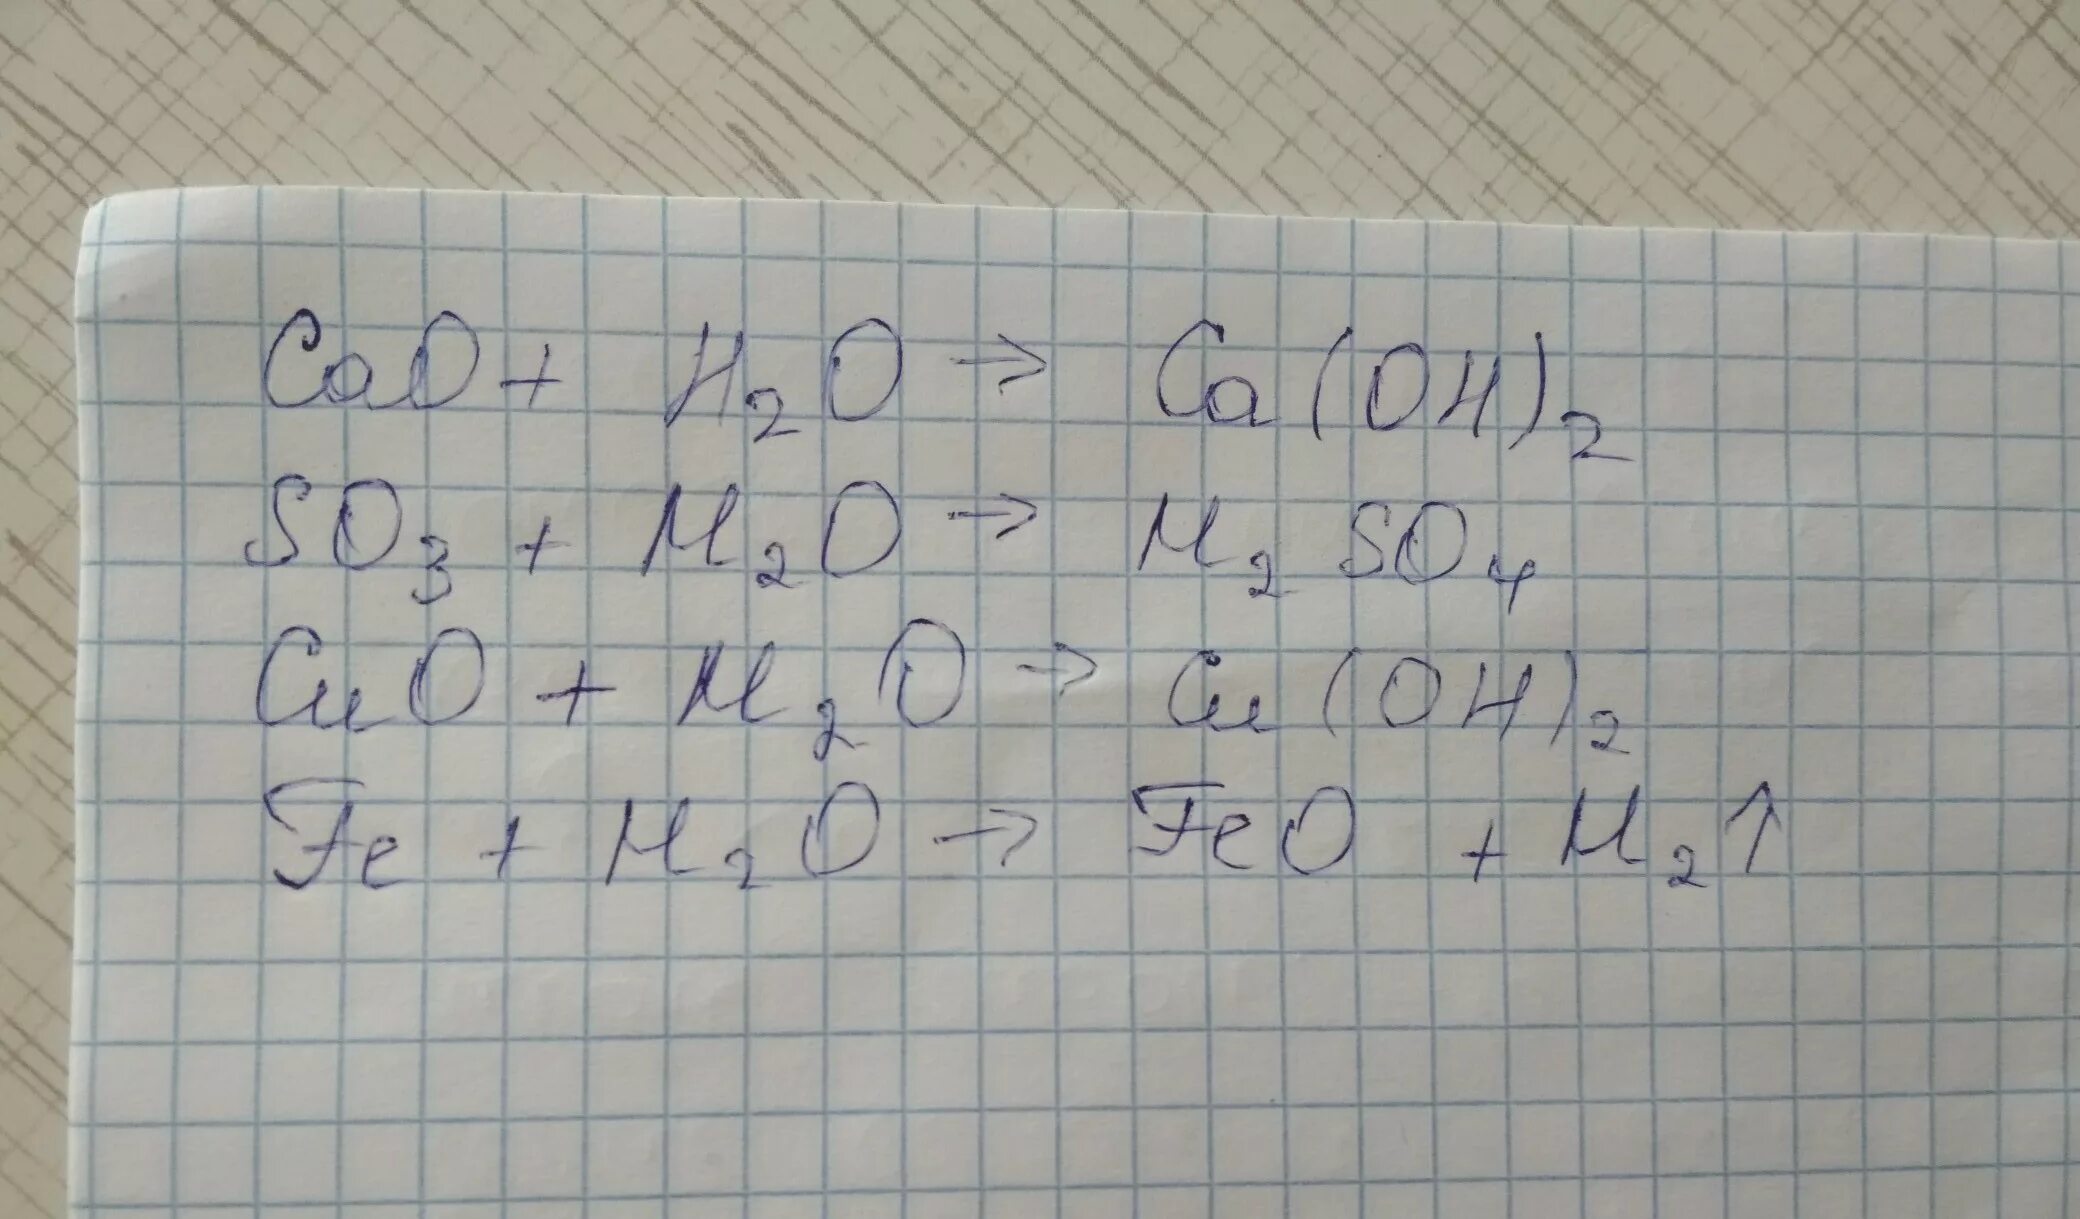 CaO + H₂O → Ca(OH)₂
SO₃ + H₂O → H₂SO₄
CuO + H₂O → Cu(OH)₂
Fe + H₂O → FeO + H₂↑